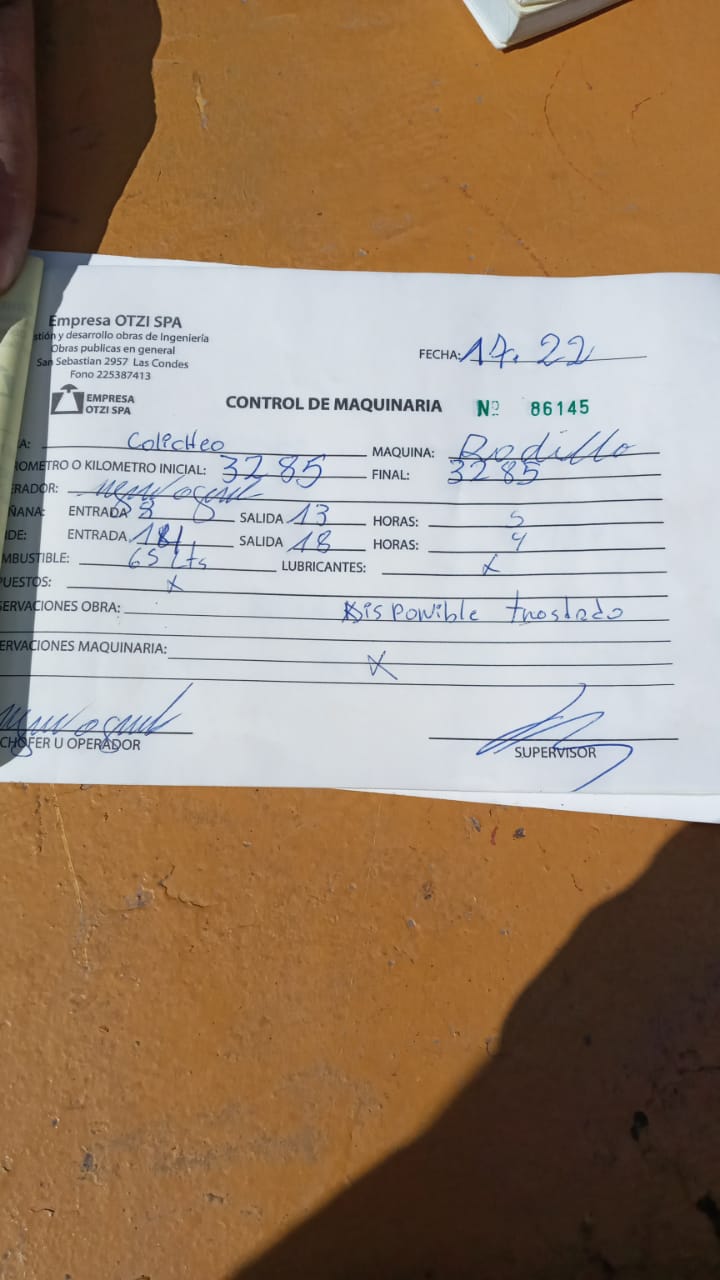 Empresa OTZI SPA
stión y desarrollo obras de Ingeniería
Obras publicas en general
San Sebastian 2957 Las Condes
Fono 225387413
EMPRESA
OTZI SPA
FECHA: 14. 22
CONTROL DE MAQUINARIA Nº 86145
A: Colicheo MAQUINA: Rodillo
ROMETRO O KILOMETRO INICIAL: 3285 FINAL: 3285
ERADOR:
ÑANA: ENTRADA 8 SALIDA 13 HORAS: 5
DE: ENTRADA SALIDA 18 HORAS: 4
MBUSTIBLE: 65 Lts LUBRICANTES: X
PUESTOS: X
SERVACIONES OBRA: Disponible troslado
ERVACIONES MAQUINARIA: X
CHOFER U OPERADOR
SUPERVISOR